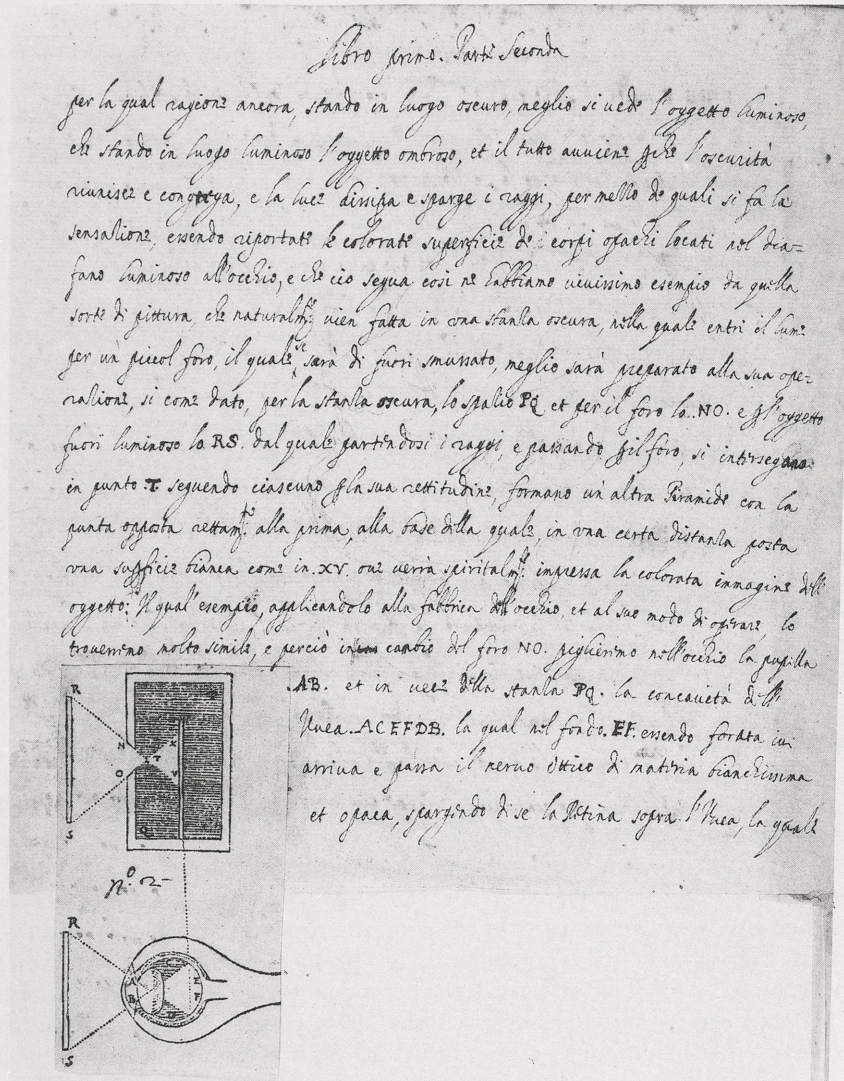 Libro primo. Parte Seconda
per la qual ragione ancora, stando in luogo oscuro, meglio si vede l'oggetto luminoso,
che stando in luogo luminoso l'oggetto ombroso, et il tutto avviene p̱che l'oscurità
riunisce e congrega, e la luce dissipa e sparge i raggi, per mezzo de quali si fa la
sensazione, essendo riportate le colorate superficie de i corpi opachi locati nel dia=
fano luminoso all'occhio, e che cio segua cosi ne habbiamo vivissimo esempio da quella
sorte di pittura che naturalmte vien fatta in vna stanza oscura, nella quale entri il lume
per un piccol foro, il quale, se sarà di fuori smussato, meglio sarà preparato alla sua ope=
razione, si come dato, per la stanza oscura, lo spazio PQ et per il foro lo NO. e p̱ l'oggetto
fuori luminoso lo RS. dal quale partendosi i raggi, e passando p̱ il foro, si intersegano
in punto T seguendo ciascuno p̱ la sua rettitudine, formano un'altra Piramide con la
punta opposta rettamte alla prima, alla base della quale, in vna certa distanza posta
vna sup̱ficie bianca come in XV. oue verrà spiritalmte impressa la colorata immagine dell'
oggetto: Il qual'esempio, applicandolo alla fabbrica dell'occhio, et al suo modo di operare, lo
troueremo molto simile, e perciò in cambio del foro NO. piglieremo nell'occhio la pupilla
AB. et in vece della stanza PQ. la concavità dell'
Vuea ACEFDB. la qual nel fondo EF. essendo forata iui
arriua e passa il neruo ottico di materia bianchissima
et opaca, spargendo di se la Retina sopra l'Vuea, la quale
R
P
N
X
I T
O
V
Q
S
No. 2
R
A
C
E
B
F
D
S